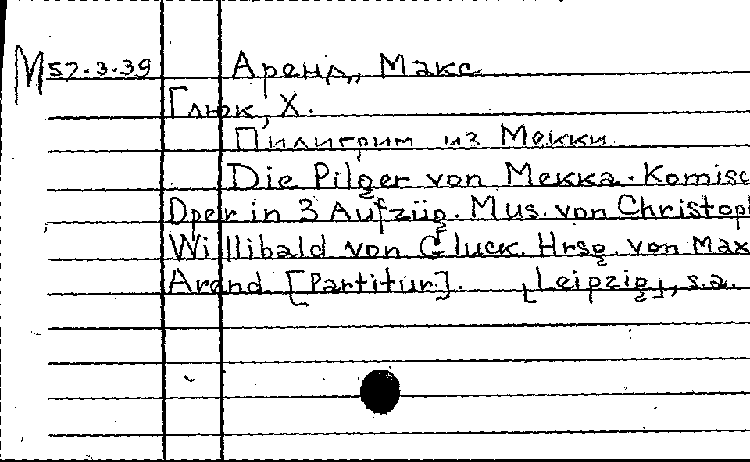 М 57-3-39 Аренд, Макс
Глюк, Х.
Пилигрим из Мекки
Die Pilger von Mekka. Komisc
Oper in 3 Aufzüg. Mus. von Christoph
Willibald von Gluck. Hrsg. von Max
Arend. [Partitur]. [Leipzig], s.a.